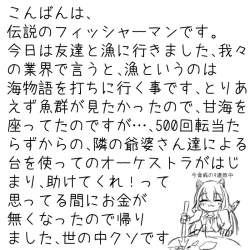 こんばんは、
伝説のフィッシャーマンです。
今日は友達と漁に行きました、我々
の業界で言うと、漁というのは
海物語を打ちに行く事です、とりあ
えず魚群が見たかったので、甘海を
座ってたのですが…、500回転当た
らずからの、隣の爺婆さん達による
台を使ってのオーケストラがはじ
まり、助けてくれ！って
思ってる間にお金が
無くなったので帰り
ました、世の中クソです